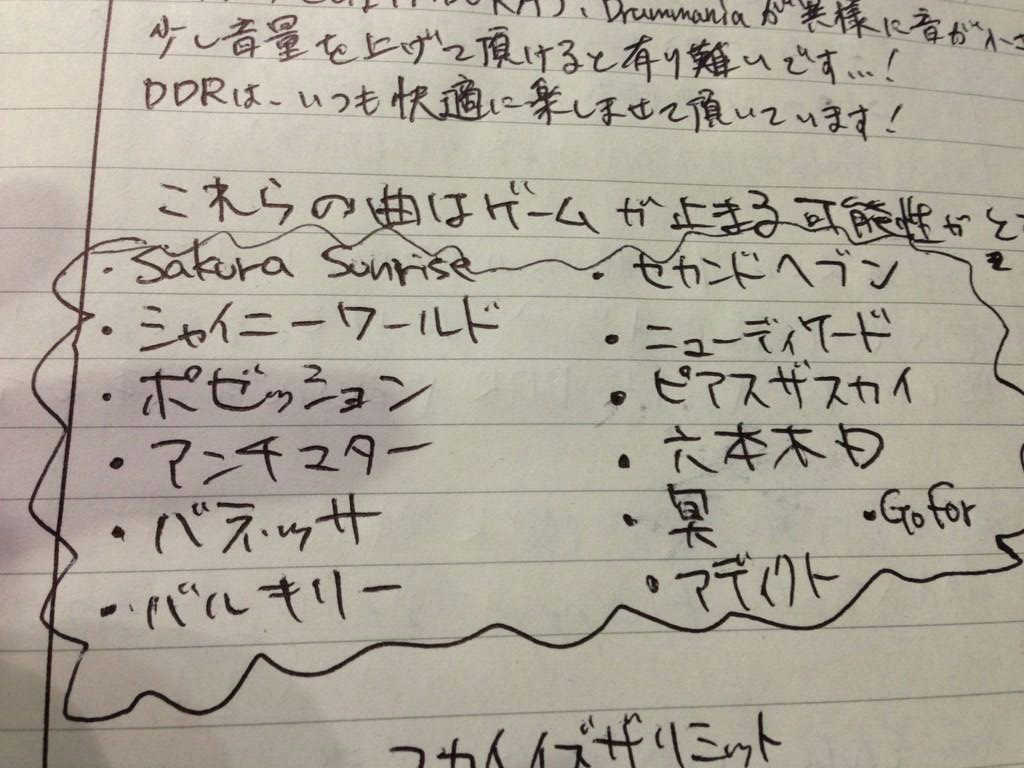 Drummaniaが異様に音が小さ
少し音量を上げて頂けると有り難いです…!
DDRは、いつも快適に楽しませて頂いています!
これらの曲はゲームが止まる可能性が
・Sakura Sunrise ・セカンドヘブン
・シャイニーワールド ・ニューディケード
・ポゼッション ・ピアスザスカイ
・アンチユター ・六本木日
・バネッサ ・冥 ・Gofor
・バルキリー ・アディクト
スカイイズザリミット